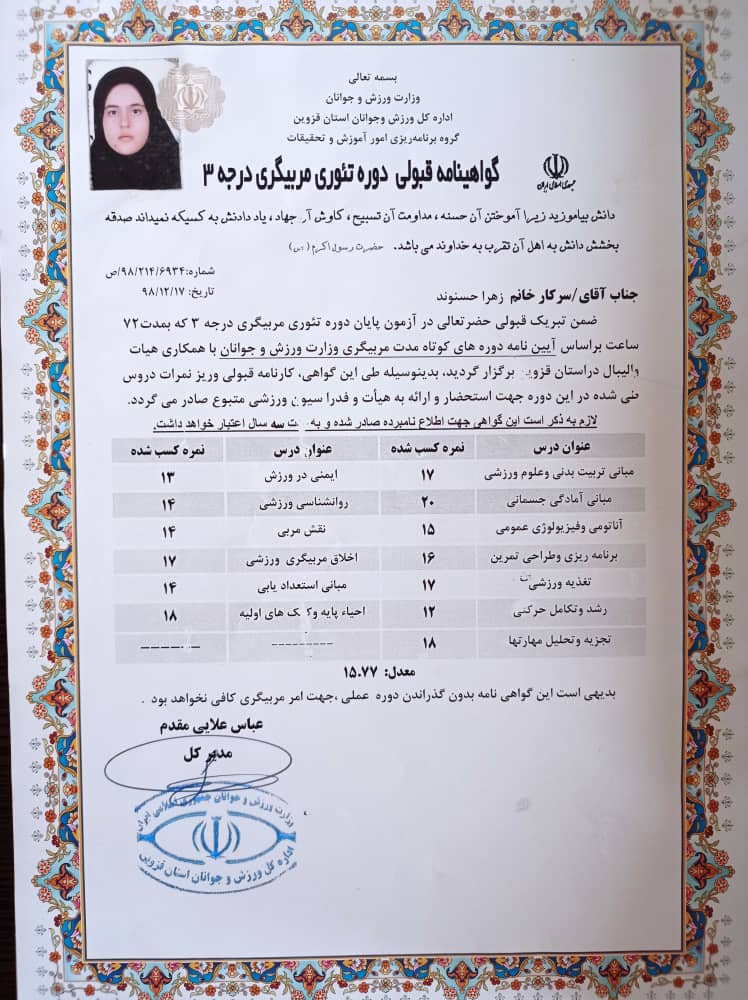 بسمه تعالی
وزارت ورزش و جوانان
اداره کل ورزش وجوانان استان قزوین
گروه برنامه‌ریزی امور آموزش و تحقیقات
جمهوری اسلامی ایران
گواهینامه قبولی دوره تئوری مربیگری درجه ۳
دانش بیاموزید زیرا آموختن آن حسنه ، مداومت آن تسبیح ، کاوش آن جهاد ، یاد دادنش به کسیکه نمیداند صدقه
بخشش دانش به اهل آن تقرب به خداوند می باشد. حضرت رسول اکرم (ص)
شماره: ۹۸/۲۱۴/۶۹۳۴/ص
تاریخ: ۹۸/۱۲/۱۷
جناب آقای/سرکار خانم زهرا حسنوند
ضمن تبریک قبولی حضرتعالی در آزمون پایان دوره تئوری مربیگری درجه ۳ که بمدت ۷۲
ساعت براساس آیین نامه دوره های کوتاه مدت مربیگری وزارت ورزش و جوانان با همکاری هیات
والیبال دراستان قزوین برگزار گردید، بدینوسیله طی این گواهی، کارنامه قبولی وریز نمرات دروس
طی شده در این دوره جهت استحضار و ارائه به هیأت و فدراسیون ورزشی متبوع صادر می گردد.
لازم به ذکر است این گواهی جهت اطلاع نامبرده صادر شده و به سه سال اعتبار خواهد داشت.
عنوان درس نمره کسب شده عنوان درس نمره کسب شده
مبانی تربیت بدنی وعلوم ورزشی ۱۷ ایمنی در ورزش ۱۳
مبانی آمادگی جسمانی ۲۰ روانشناسی ورزشی ۱۴
آناتومی وفیزیولوژی عمومی ۱۵ نقش مربی ۱۴
برنامه ریزی وطراحی تمرین ۱۶ اخلاق مربیگری ورزشی ۱۷
تغذیه ورزشی ۱۷ مبانی استعداد یابی ۱۴
رشد وتکامل حرکتی ۱۲ احیاء پایه وکمک های اولیه ۱۸
تجزیه وتحلیل مهارتها ۱۸ --------- ------
معدل: ۱۵.۷۷
بدیهی است این گواهی نامه بدون گذراندن دوره عملی ،جهت امر مربیگری کافی نخواهد بود .
عباس علایی مقدم
مدیر کل
وزارت ورزش و جوانان جمهوری اسلامی ایران
اداره کل ورزش و جوانان استان قزوین